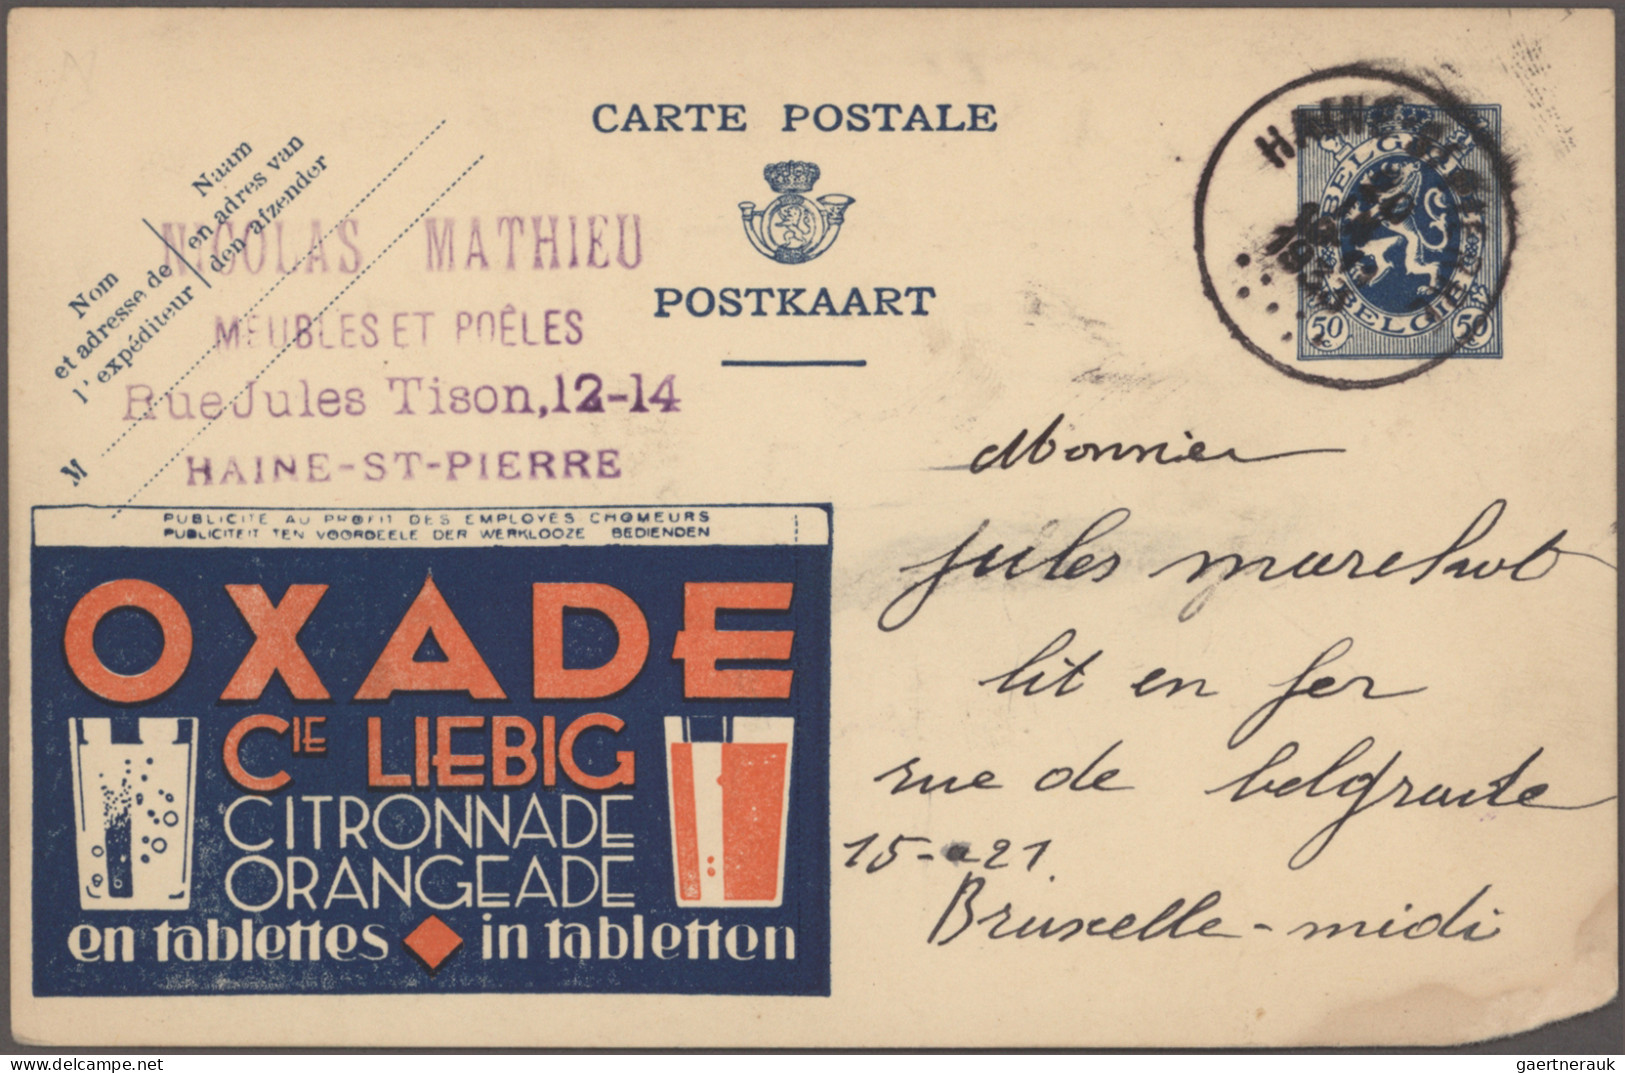 CARTE POSTALE
POSTKAART
Naam
en adres van
den afzender
Nom
et adresse de
l'expéditeur
M
NICOLAS MATHIEU
MEUBLES ET POÊLES
Rue Jules Tison, 12-14
HAINE-ST-PIERRE
HAINE
BELGIQUE
BELGIE
50 c 50 c
PUBLICITE AU PROFIT DES EMPLOYES CHOMEURS
PUBLICITEIT TEN VOORDEELE DER WERKLOOZE BEDIENDEN
OXADE
CIE LIEBIG
CITRONNADE
ORANGEADE
en tablettes in tabletten
Jules
lit en fer
rue de belgrade
15-21
Bruxelle-midi
gaertnerauk